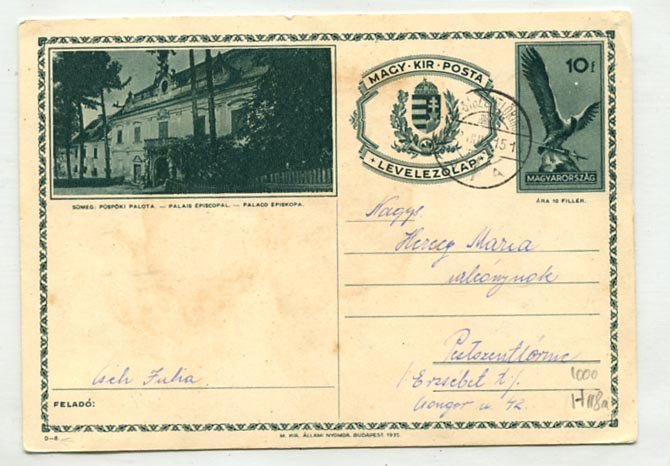 SÜMEG: PÜSPÖKI PALOTA. — PALAIS ÉPISCOPAL. — PALACO EPISKOPA.
MAGY · KIR · POSTA
LEVELEZŐLAP
10 f
MAGYARORSZÁG
ÁRA 10 FILLÉR.
Nagys.
Herceg Maria
Pestszentlőrinc
Erzsébet t/.
Csongor u. 42.
Julia
FELADÓ:
1000
H 118a
D–8
M. KIR. ÁLLAMI NYOMDA, BUDAPEST. 1931.